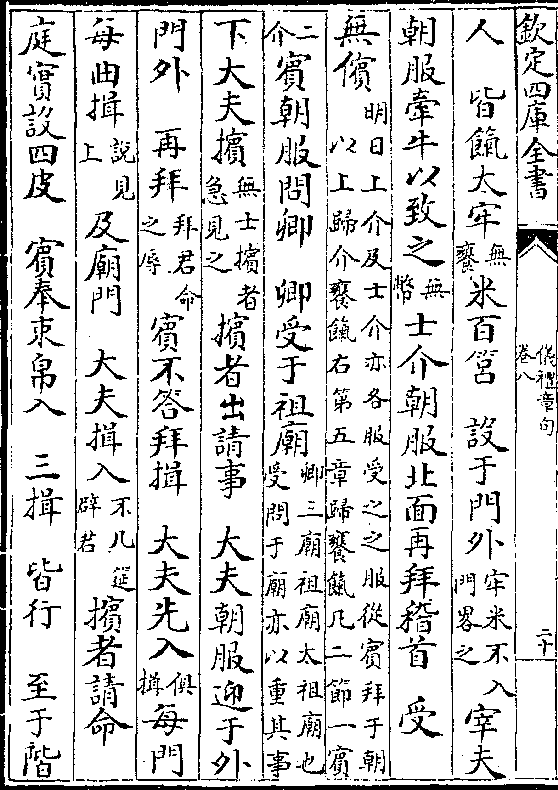 欽定四庫全書
儀禮章句
卷八
二十
人　皆餼太牢無饔米百筥　設于門外牢米不入門畧之宰夫
朝服牽牛以致之無幣士介朝服北面再拜稽首　受
無儐明日上介及士介亦各服受之之服從賓拜于朝以上歸介饔餼右第五章歸饔餼凡二節一賓
二介賓朝服問卿　卿受于祖廟卿三廟祖廟太祖廟也受問于廟亦以重其事
下大夫擯無士擯者急見之擯者出請事　大夫朝服迎于外
門外　再拜拜君命之辱賓不答拜揖　大夫先入俱揖每門
每曲揖說見上及廟門　大夫揖入不几筵辟君擯者請命
庭實設四皮　賓奉束帛入　三揖　皆行　至于階